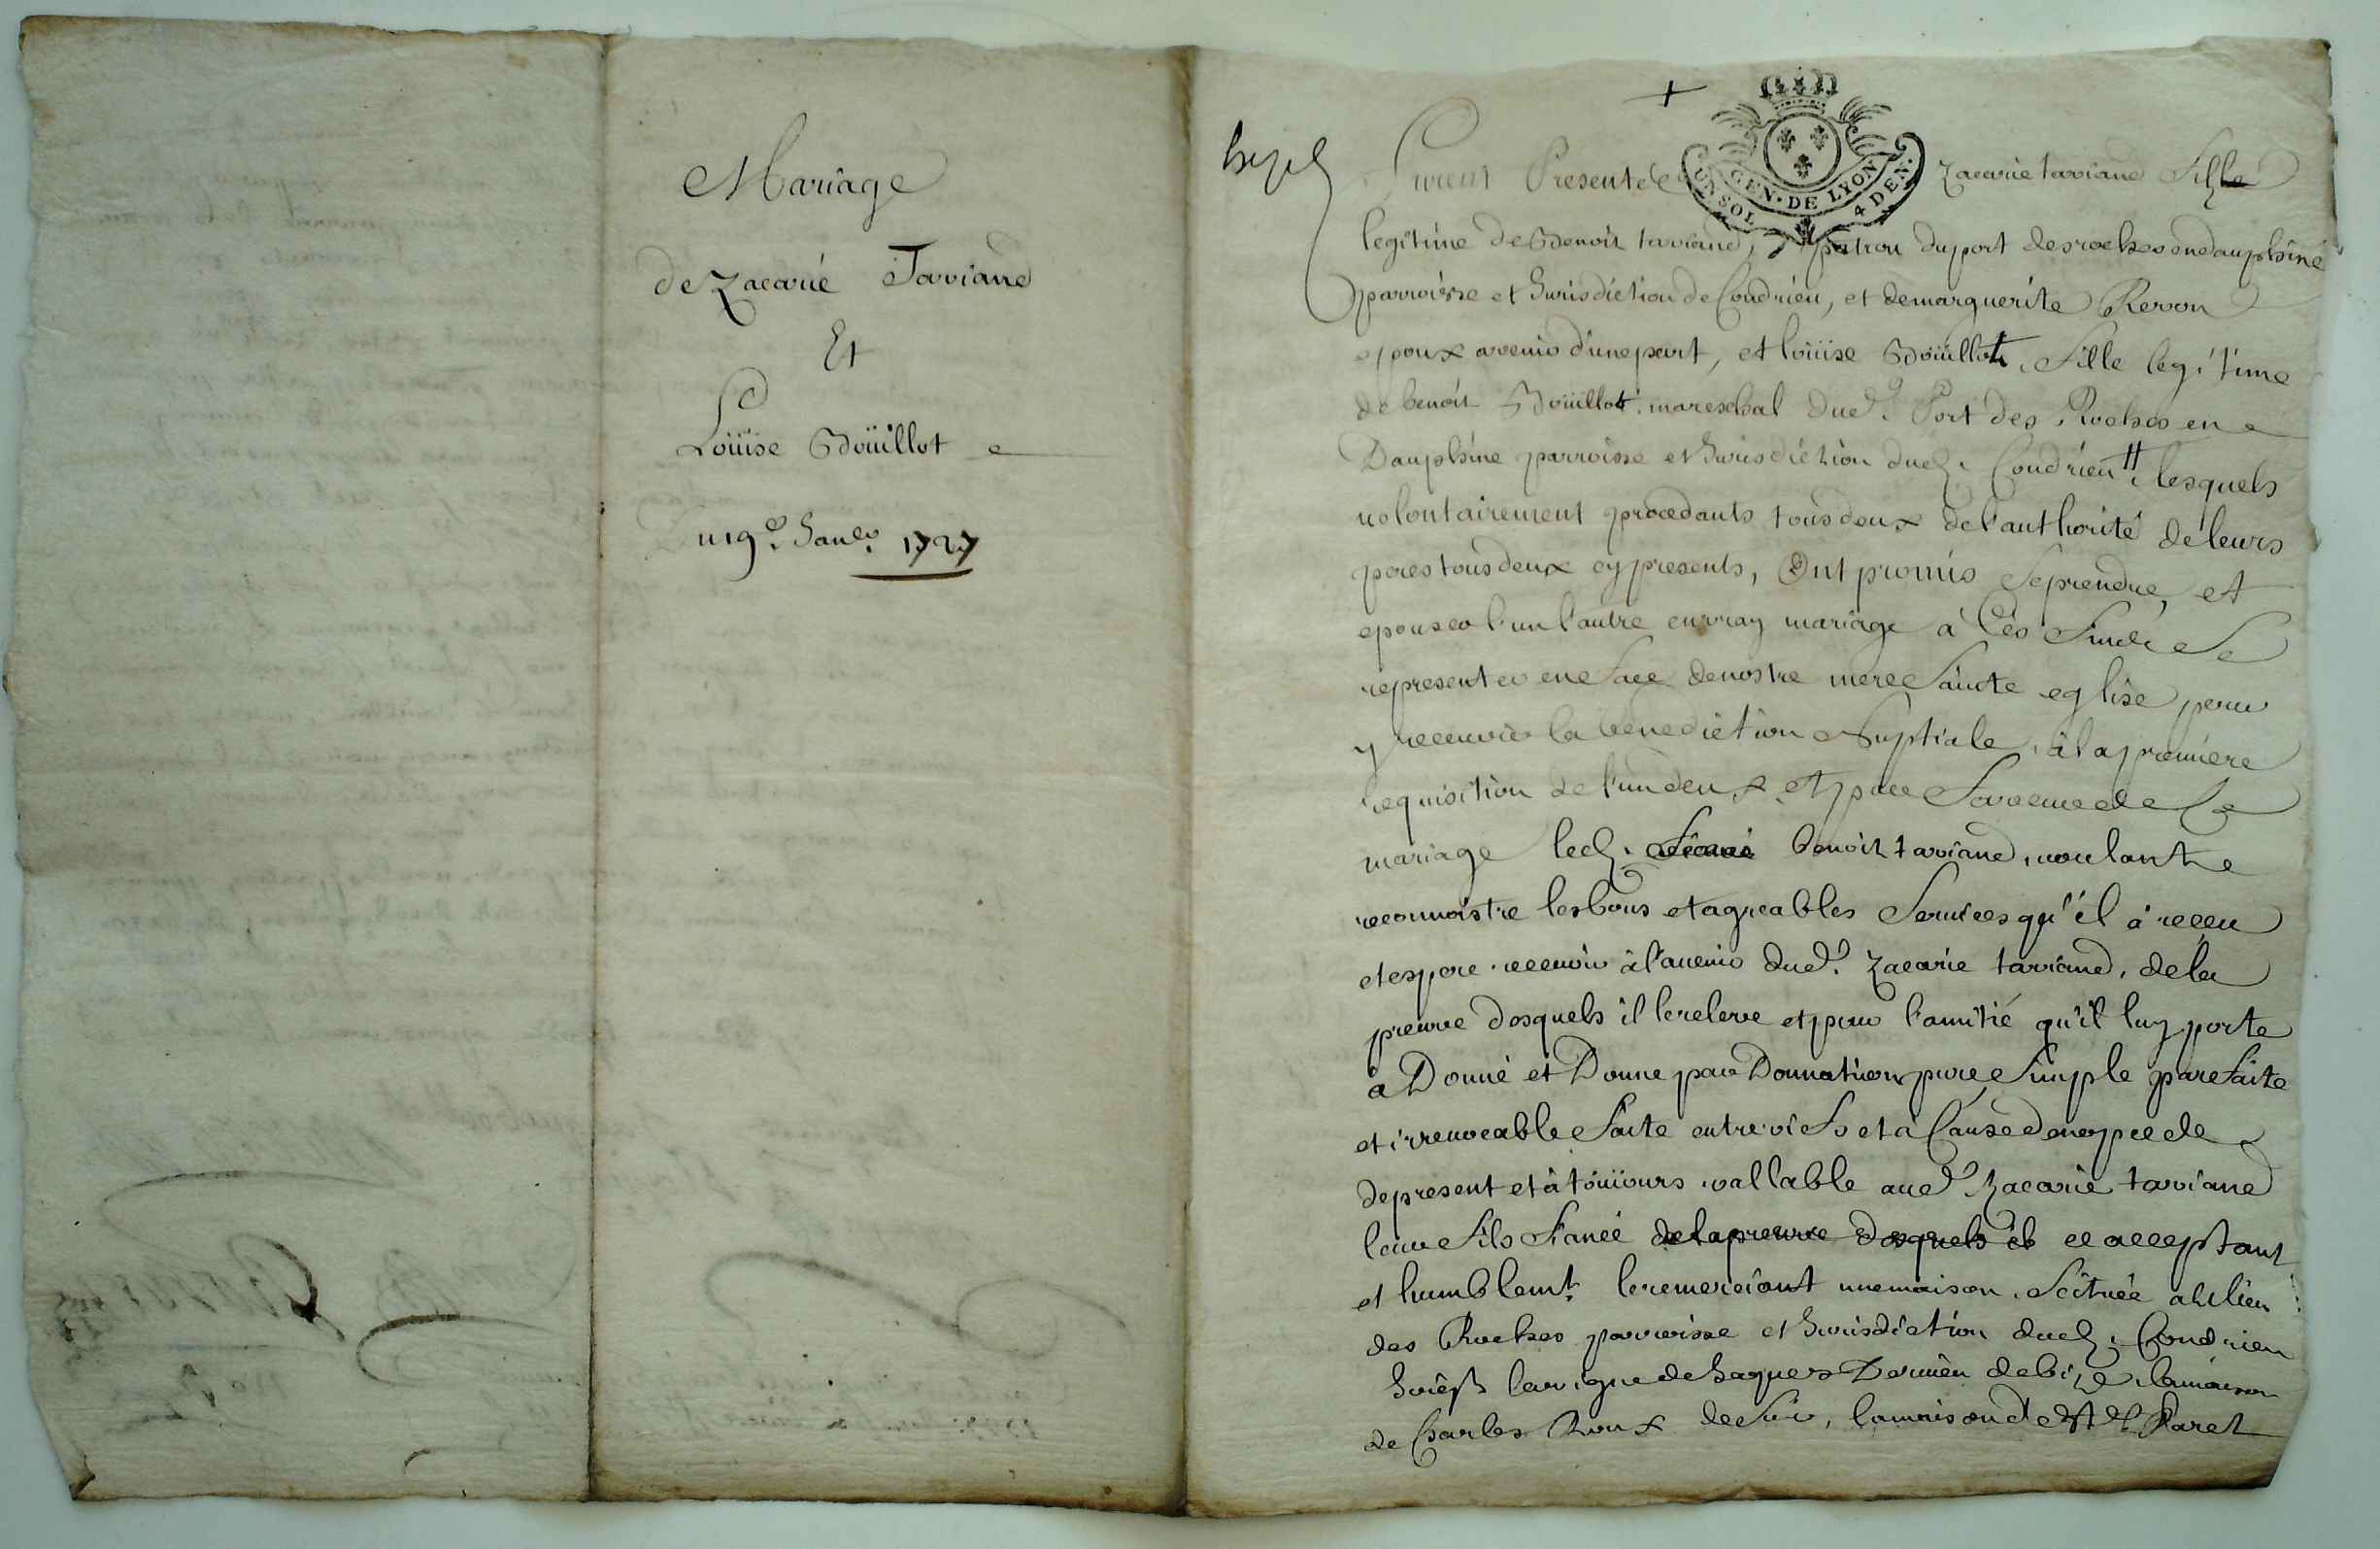 Mariage
de Zacarie Taviand
Et
Loüise Boüillot
Du 19e. Janer. 1727
+
Furent Presents Zacarie taviand Filz
GEN. DE LYON
UN SOL 4 DEN.
legitime de Benoit taviand, patron du port des roches en dauphiné
parroisse et Jurisdiction de Condrieu, et de marguerite Revon
epoux avenir d'une part, et loüise Boüillot, fille legitime
de benoit Boüillot mareschal dud. Port des Roches en
Dauphine parroisse et Jurisdiction dud. Condrieu, lesquels
volontairement procedants tous deux de l'authorité de leurs
peres tous deux cy presents, Ont promis se prendre, et
epouser l'un l'autre en vray mariage à Ces fins de se
representer en face de nostre mere sainte eglise pour
y recevoir la benediction Nuptiale à la premiere
requisition de l'un deux, et pour faveur de Ce
mariage led. benoit taviand, voulant
reconnoistre les bons et agreables services qu'il à receu
et espere recevoir à l'avenir dud. Zacarie taviand, de la
preuve desquels il le releve et pour l'amitié qu'il luy porte
à Donné et Donne par Donnation pure simple parfaite
et irrevocable faite entre vifs et à Cause de nopce de
de present et à toüiours vallable aud. Zacarie taviand
leur fils fiancé de la preuve desquels il ce acceptant
et humblemt. le remerciant une maison scituée au lieu
des Roches parroisse et Jurisdiction dud. Condrieu
Joüist la vigne de Jaques de bize, la maison
de Charles Roux de soir, la maison de Paret